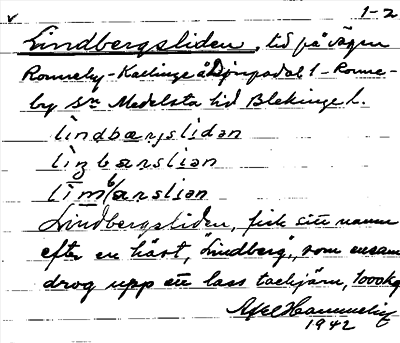 v 1-2
Lindbergsliden, lid på vägen
Ronneby-Kallinge å Djupadal 1 - Ronne-
by Sn Medelsta hd Blekinge l.
lindbærjslidən
liŋbærsliən
limbærsliən
Lindbergsliden, fick sitt namn
efter en häst, "Lindberg", som ensam
drog upp ett lass tackjärn, 1000 kg
Axel Hammelin
1942